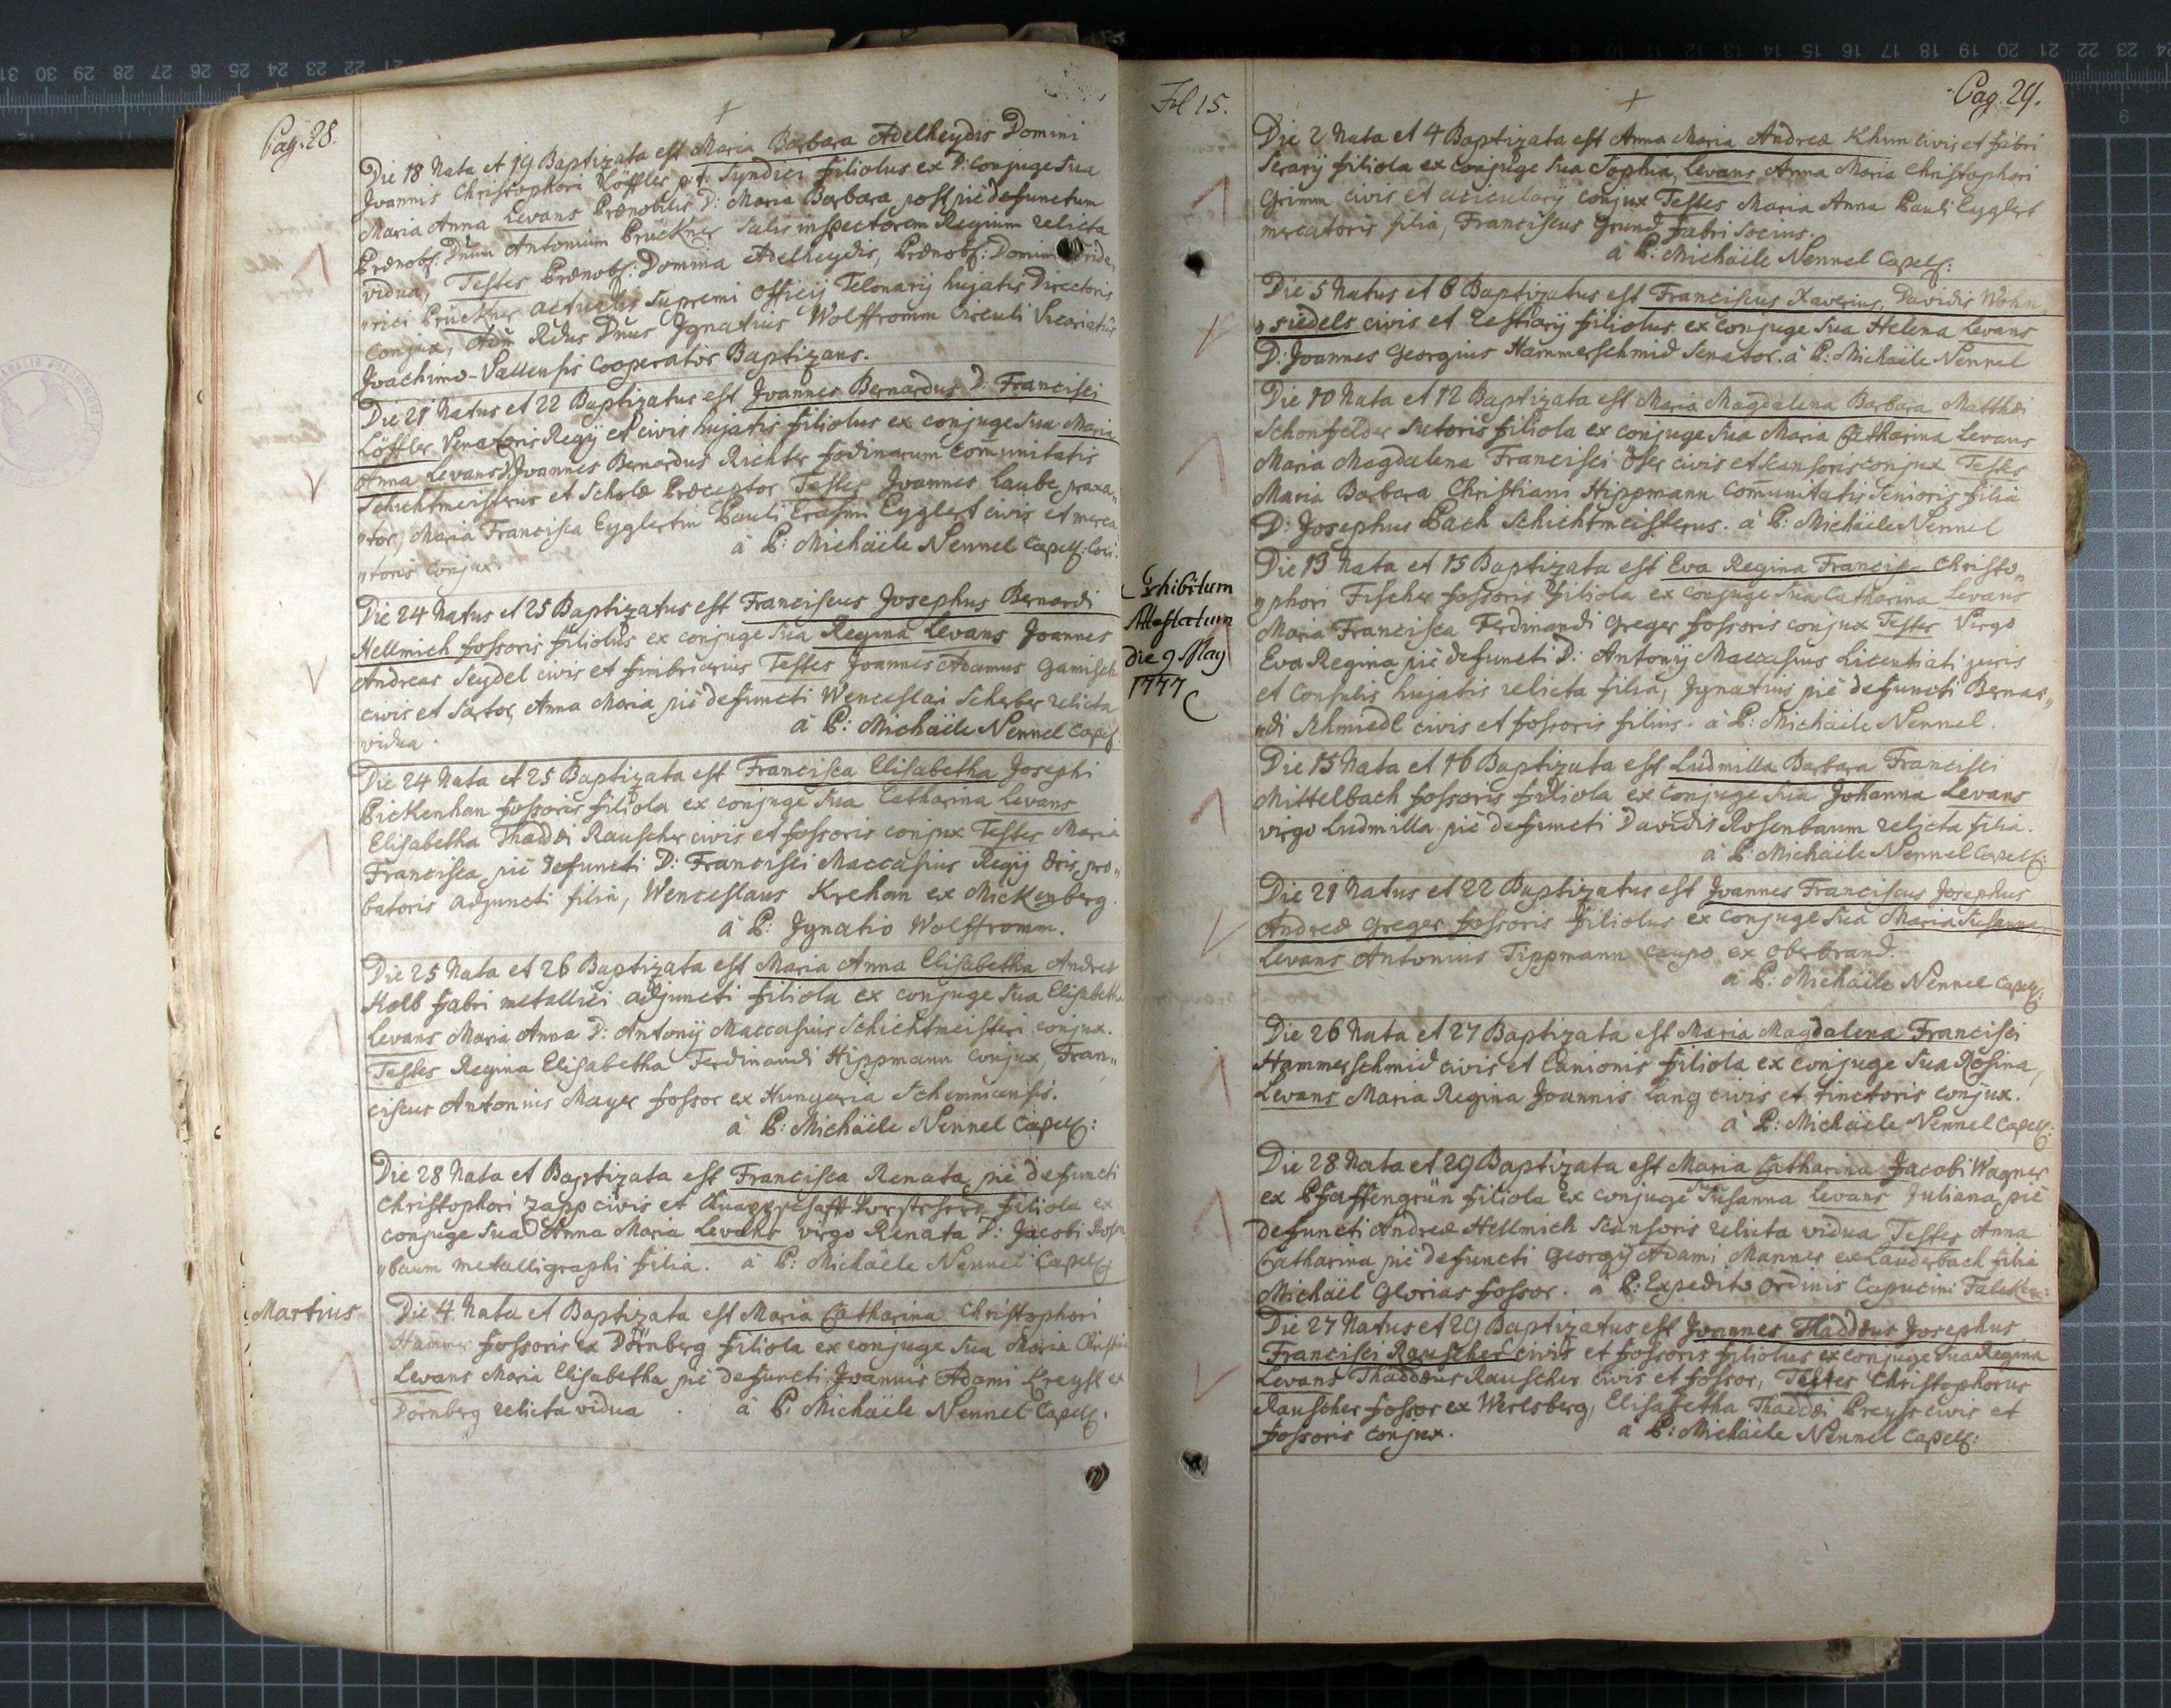 Pag: 28.
Die 18 Nata et 19 Baptizata est Maria Barbara Adelheydis Domini
Joannis Christophori Löffler p: t: Syndici filiolus ex D: Conjuge sua
Maria Anna Levans Prænobilis D: Maria Barbara post piè defunctum
Prænobs: Dnum Antonium Pruckner Salis inspectorem Regium relicta
vidua, Testes Prænobs: Domina Adelheydis, Prænobs: Domini Fride„
„rici Prückner actualis Supremi Officij Telonarij hujatis Directoris
Conjux, Adm Rdus Dnus Jgnatius Wolffromm Circuli Vicariatûs
Joachimo-Vallensis Cooperator Baptizans.
Die 21 Natus et 22 Baptizatus est Joannes Bernardus D: Francisci
Löffler Venatoris Regij et civis hujatis filiolus ex conjuge sua Maria
Anna Levans D: Joannes Bernardus Richter fodinarum Communitatis
Schichtmeisterus et Scholæ Præceptor Testes Joannes Laube praxa„
„tor, Maria Francisca Eyglertin Pauli Erasmi Eyglert civis et merca
„toris conjux. à P: Michäele Nennel Capell: Loci:
Die 24 Natus et 25 Baptizatus est Franciscus Josephus Bernardi
Hellmich fossoris filiolus ex conjuge sua Regina Levans Joannes
Andreas Seydel civis et fimbriarius Testes Joannes Adamus Gamisch
civis et Sartor, Anna Maria piè defuncti Wenceslai Scherber relicta
vidua. à P: Michäele Nennel Capell
Die 24 Nata et 25 Baptizata est Francisca Elisabetha Josephi
Pickenhan fossoris filiola ex conjuge sua Catharina Levans
Elisabetha Thaddæi Rauscher civis et fossoris conjux Testes Maria
Francisca piè defuncti D: Francisci Maccasius Regij æris pro„
batoris adjuncti filia, Wenceslaus Krehan ex Mickenberg.
à P: Jgnatio Wolffromm.
Die 25 Nata et 26 Baptizata est Maria Anna Elisabetha Andreæ
Kolb fabri metallici adjuncti filiola ex conjuge sua Elisabetha
Levans Maria Anna D: Antonij Maccasius Schichtmeisteri conjux.
Testes Regina Elisabetha Ferdinandi Hippmann conjux, Fran„
ciscus Antonius Mayer fossor ex Hungaria Schemnicensis.
à P: Michäele Nennel Capell:
Die 28 Nata et Baptizata est Francisca Renata piè defuncti
Christophori Zapp civis et Knappschafft Vorstehers filiola ex
conjuge sua Anna Maria Levans virgo Renata D: Jacobi Rosen
„baum metalligraphi filia. à P: Michäele Nennel Capell:
Martius
Die 4 Nata et Baptizata est Maria Catharina Christophori
Hamer fossoris ex Dörnberg filiola ex conjuge sua Maria Christina
Levans Maria Elisabetha piè defuncti Joannis Adami Kreysl ex
Dörnberg relicta vidua. à P: Michäele Nennel Capell:
Fol 15.
Pag. 29.
Die 2 Nata et 4 Baptizata est Anna Maria Andreæ Khun civis et fabri
Serarij filiola ex conjuge sua Sophia, Levans Anna Maria Christophori
Grimm civis et acicularij conjux Testes Maria Anna Pauli Eyglert
mercatoris filia, Franciscus Grund fabri Socius.
à P: Michäele Nennel Capell:
Die 5 Natus et 6 Baptizatus est Franciscus Xaverius, Davidis Wohn„
„siedels civis et Restiarij filiolus ex conjuge sua Helena Levans
D: Joannes Georgius Hammerschmid Senator. à P: Michäele Nennel
Die 10 Nata et 12 Baptizata est Maria Magdalena Barbara Matthæi
Schönfelder Sutoris filiola ex conjuge sua Maria Catharina Levans
Maria Magdalena Francisci Öser civis et scansoris conjux Testes
Maria Barbara Christiani Hippmann Communitatis Senioris filia
D: Josephus Pach Schichtmeisterus. à P: Michäele Nennel
Die 13 Nata et 15 Baptizata est Eva Regina Francisca Christo„
„phori Fischer fossoris filiola ex conjuge sua Catharina Levans
Maria Francisca Ferdinandi Greger fossoris conjux Testes Virgo
Eva Regina piè defuncti D: Antonij Maccasius Licentiati juris
et Consulis hujatis relicta filia, Jgnatius piè defuncti Bernar„
„di Schmiedl civis et fossoris filius. à P: Michäele Nennel.
Exhibitum
Attestatum
die 9 May
1777
Die 15 Nata et 16 Baptizata est Ludmilla Barbara Francisci
Mittelbach fossoris filiola ex conjuge sua Johanna Levans
virgo Ludmilla piè defuncti Davidis Rosenbaum relicta filia.
à P: Michäele Nennel Capell:
Die 21 Natus et 22 Baptizatus est Joannes Franciscus Josephus
Andreæ Greger fossoris filiolus ex conjuge sua Maria Susanna
Levans Antonius Tippmann caupo ex Oberbrand.
à P: Michäele Nennel Capell:
Die 26 Nata et 27 Baptizata est Maria Magdalena Francisci
Hammerschmid civis et Lanionis filiola ex conjuge sua Rosina,
Levans Maria Regina Joannis Lang civis et tinctoris conjux.
à P: Michäele Nennel Capell:
Die 28 Nata et 29 Baptizata est Maria Catharina Jacobi Wagner
ex Pfaffengrün filiola ex conjuge Susanna Levans Juliana piè
defuncti Andreæ Hellmich scansoris relicta vidua Testes Anna
Catharina piè defuncti Georgij Adami Manner ex Lauderbach filia
Michäel Glorias fossor. à P: Expedito Ordinis Capucini
Die 27 Natus et 29 Baptizatus est Joannes Thaddæus Josephus
Francisci Rauscher civis et fossoris filiolus ex conjuge sua Regina
Levans Thaddæus Rauscher civis et fossor, Testes Christophorus
Rauscher fossor ex Werlsberg, Elisabetha Thaddæi Preyss civis et
fossoris conjux. à P: Michäele Nennel Capell: